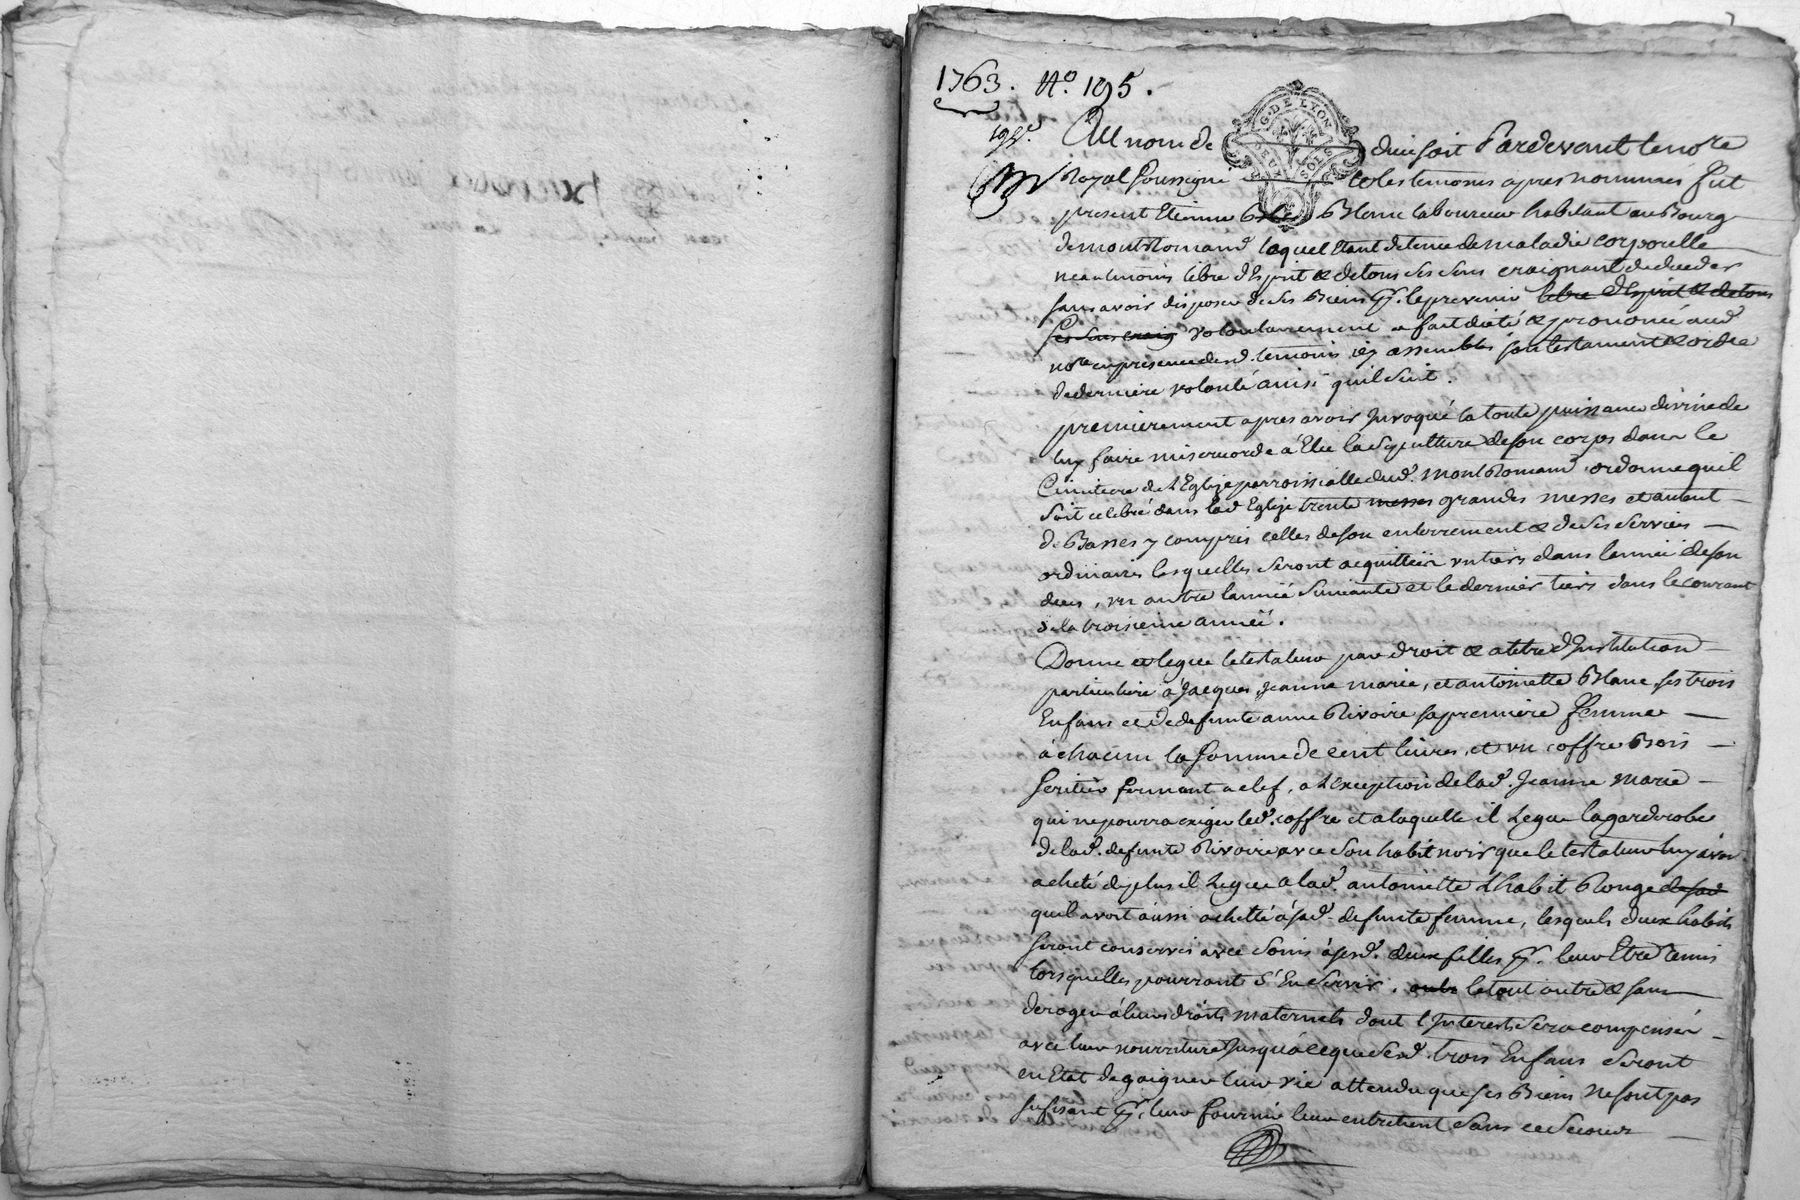 1763. N.º 195.
195.e
G. DE LYON
DEUX SOLS
Au nom de dieu soit Pardevant le no.re
Royal soussigné et les temoins apres nommés fut
present Etienne Blanc laboureur habitant au Bourg
de montRomand lequel Etant detenu de maladie corporelle
neantmoins libre d'Esprit & de tous ses sens craignant de deceder
sans avoir disposer de ses Biens p.r le prevenir libre d'Esprit & de tous
ses sens craig volontairement a fait dicté & prononcé aud.
no.re en presence desd. temoins icy assemblés son testament & ordre
de derniere volonté ainsi quil suit.
premierement apres avoir Invoqué la toute puissance divine de
luy faire misericorde a Elu la sepulture de son corps dans le
Cimitiere de L'Eglize parroissialle dud. montRomand, ordonne quil
soit celebré dans lad. Eglize trente messes grandes messes et autant
de Basses y compris celles de son enterrement & de ses services
ordinaires lesquelles seront acquittées un tiers dans l'année de son
deces, un autre l'année suivante et le dernier tiers dans le courant
de la troisieme année.
Donne et legue le testateur par droit & a titre d'Institution
particuliere à Jacques, Jeanne marie, et antoinette Blanc ses trois
Enfans et de defunte anne Rivoire sa premiere femme
à chacun la somme de cent livres, et un coffre Bois
fermant a clef, a L'Exception de lad. Jeanne marie
qui ne pourra exiger led. coffre et a laquelle il Legue la garderobe
de lad. defunte Rivoire avec son habit noir que le testateur luy avoit
acheté de plus il Legue a lad. antoinette L'habit Rouge de sad
quil avoit aussi achetté à sad. defunte femme, lesquels deux habits
seront conservés avec soins à sesd. deux filles p.r leur Etre remis
lorsquelles pourront s'En servir. outre le tout outre & sans
deroger à leurs droits maternels dont l'Interest sera compensé
avec leur nourriture Jusqua ce que sesd. trois Enfans seront
en Etat de gaigner leur vie attendu que ses Biens ne sont pas
sufisant p.r leur fournir leur entretient sans ce secour